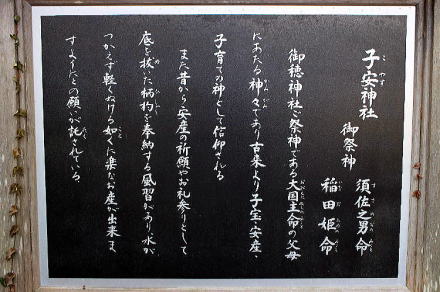 子安神社
御祭神
須佐之男命
稲田姫命
御穂神社ご祭神である大国主命の父母
にあたる神々であり古来より子宝・安産・
子育ての神として信仰される
また昔から安産の祈願やお礼参りとして
底を抜いた柄杓を奉納する風習があり、水が
つかえず軽くぬける如くに楽なお産が出来ま
すようにとの願いが託されている。